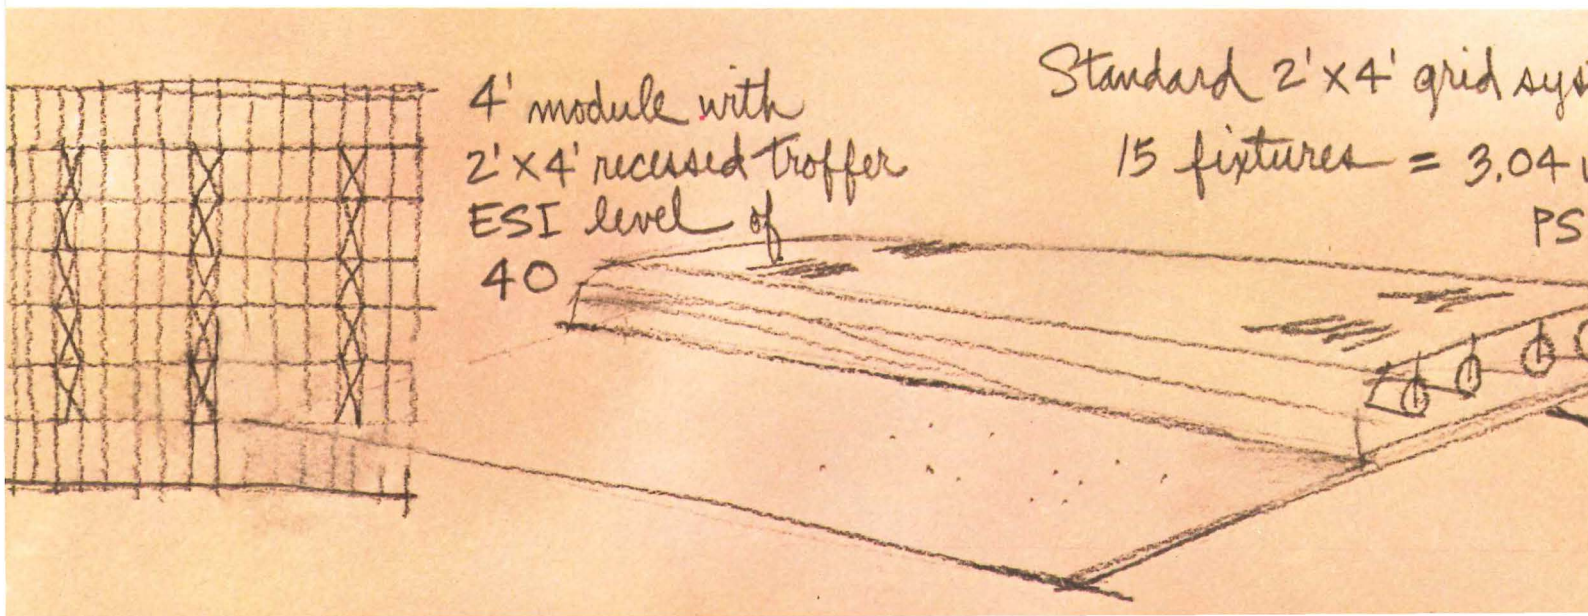 4' module with
2'x4' recessed troffer
ESI level of
40
Standard 2'x4' grid sys
15 fixtures = 3.04
PS